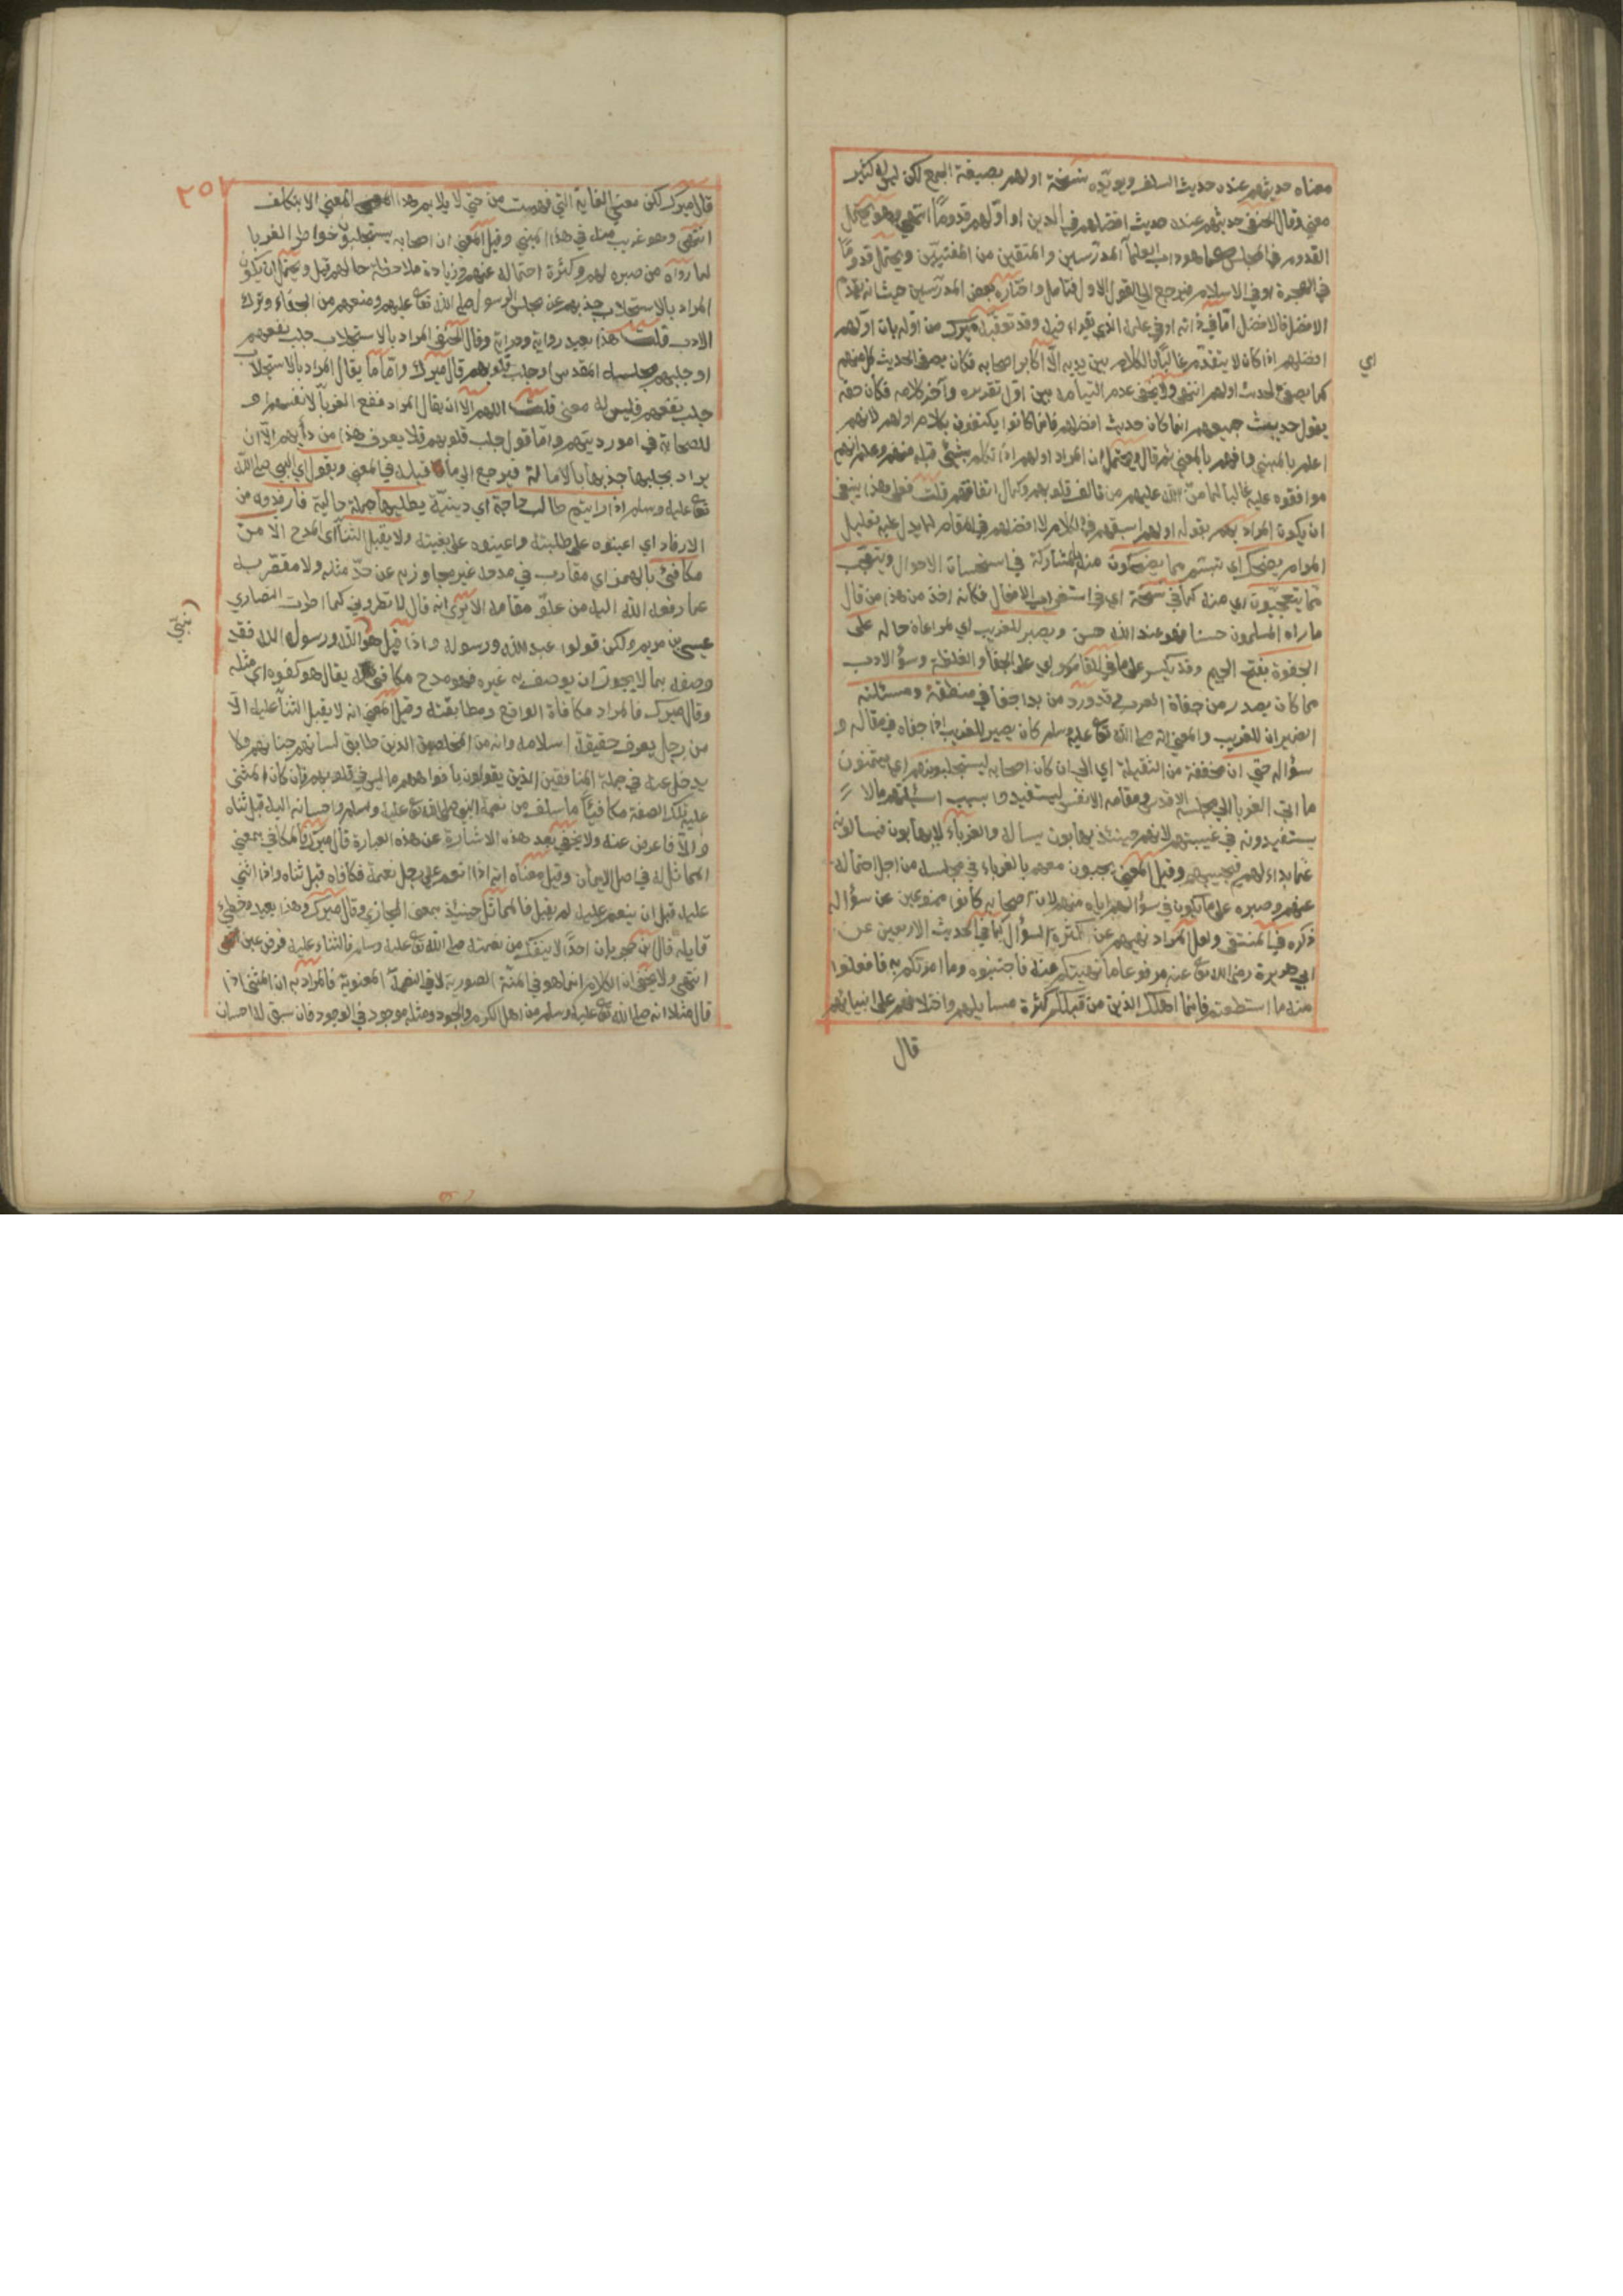 معناه حديثهم عنده حديث السلف ويؤيده نسخة اولهم بصيغة الجمع لكن ليس له كثير
معنى وقال الحنفي حديثهم عنده حديث افضلهم في الدين او اولهم قدوما انتهى وهو يحتمل
القدوم في المجلس كما هو داب العلماء المدرسين والمتقين من المفتيين ويحتمل قدوما
في الهجرة او في الاسلام فيرجع الى القول الاول فتامل واختاره بعض المدرسين حيث انه يقدم
الافضل فالافضل اما في ذاته او في علمه الذي يقراء فيه وقد تعقبه ميرك من اوله بان اولهم
افضلهم اذا كان لا يتقدم غالبا بالكلام بين يديه الا اكابر اصحابه فكان يصغي لحديث كل منهم
كما يصغي لحديث اولهم انتهى ولا يخفى عدم التيامه بين اول تقديره وآخر كلامه فكان حقه
يقول حديث جميعهم انما كان حديث افضلهم فانما كانوا يكتفون بكلام اولهم لانهم
اعلم بالمبنى وافهم بالمعنى ثم قال ويحتمل ان المراد اولهم اذا تكلم بشئ قبله منهم وعلم انهم
موافقوه عليه غالبا لما من الله عليهم من تالف قلوبهم وكمال اتفاقهم قلت فعلى هذا ينبغي
ان يكون المراد بهم بقوله اولهم اسبقهم في الكلام لا افضلهم في المقام لما يدل عليه تعليل
المرام يضحك اي يتبسم مما يضحكون منه اي لمشاركة في استحسان الاحوال ويتعجب
مما يتعجبون اي منه كما في نسخة اي في استغراب الافعال فكانه اخذ من هذا من قال
ما راه المسلمون حسنا فهو عند الله حسن ويصبر للغريب اي لمراعاة حاله على
الجفوة بفتح الجيم وقد يكسر على ما في القاموس اي على الجفاء والغلظة وسوء الادب
مما كان يصدر من جفاة العرب وقد ورد من بدا جفا في منطقه ومسئلته
الضميران للغريب والمعنى انه صلى الله تعالى عليه وسلم كان يصبر للغريب اذا جفاه في مقاله و
سؤاله حتى ان مخففة من الثقيلة اي الى ان كان اصحابه ليستجلبونهم اي يتمنون
ما اتى الغربا الى مجلسه الاقدس ومقامه الانفس ليستفيدوا بسبب اسئلتهم مالا
يستفيدونه في غيبتهم لانهم حينئذ يهابون سؤاله والغرباء لا يهابون فيسالونه
عما بداء لهم فيجيبهم وقيل المعنى يجيبون معهم بالغرباء في مجلسه من اجل احتماله
عنهم وصبره على ما يكون في سؤالهم اياه منهم لان اصحابه كانوا ممنوعين عن سؤاله
ذكره في المنتقى ولعل المراد نهيهم عن كثرة السؤال كما في الحديث الاربعين عن
ابي هريرة رضي الله تع عنه مرفوعا ما نهيتكم عنه فاجتنبوه وما امرتكم به فافعلوا
منه ما استطعتم فانما اهلك الذين من قبلكم كثرة مسايلهم واختلافهم على انبيائهم
قال
اي
٢٥٧
قال ميرك لكن معنى الغاية التي فهمت من حتى لا يلايم هذا المعنى الا بتكلف
انتهى وهو غريب منه في هذا المبنى وقيل المعنى ان اصحابه يستجلبون خواطر الغربا
لما راوه من صبره لهم وكثرة احتماله عنهم وزيادة ملاحظة حالهم قيل ويحتمل ان يكون
المراد بالاستجلاب جذبهم عن مجلس الرسول صلى الله تعالى عليه وسلم ومنعهم من الجفاء وترك
الادب قلت هذا بعيد رواية ودراية وقال الحنفي المراد بالاستجلاب جلب نفعهم
او جلبهم مجلسه المقدس او جلب قلوبهم قال ميرك واما ما يقال المراد بالاستجلاب
جلب نفعهم فليس له معنى قلت اللهم الا ان يقال المراد نفع الغربا لانفسهم او
للصحابة في امور دينهم واما قول جلب قلوبهم فلا يعرف هذا من دأبهم الا ان
يراد بجلبها جذبها بالامالة فيرجع الى ما قبله في المعنى ويقول اي النبي صلى الله
تعالى عليه وسلم اذا رايتم طالب حاجة اي دينية يطلبها جملة حالية فارفدوه من
الارفاد اي اعينوه على طلبته واعينوه على بغيته ولا يقبل الثناء اي المدح الا من
مكافئ بالهمز اي مقارب في مدحه غير مجاوز به عن حد مثله ولا مقصر به
عما رفعه الله اليه من علو مقامه الا ترى انه قال لا تطروني كما اطرت النصارى
عيسى بن مريم ولكن قولوا عبد الله ورسوله واذا قيل هو نبي الله ورسول الله فقد
وصفه بما لا يجوز ان يوصف به غيره فهو مدح مكافئ له يقال هو كفوه اي مثله
وقال ميرك فالمراد مكافاة الواقع ومطابقته وقيل المعنى انه لا يقبل الثناء عليه الا
من رجل يعرف حقيقة اسلامه وانه من المخلصين الذين طابق لسانهم جنانهم ولا
يدخل عنده في جملة المنافقين الذين يقولون بافواههم ما ليس في قلوبهم فان كان المثنى
عليه بتلك الصفة مكافيا ما سلف من نعمة النبي صلى الله تع عليه وسلم واحسانه اليه قبل ثناه
والا فاعرض عنه ولا يخفى بعد هذه الاشارة عن هذه العبارة قال ميرك فالمكافي بمعنى
المماثل له في اصل الايمان وقيل معناه انه اذا انعم على رجل نعمة فكافاه قبل ثناه واذا اثنى
عليه قبل ان ينعم عليه لم يقبل فالمماثل حينئذ بمعنى المجازي وقال ميرك وهذا بعيد وخطئ
قايله قال ابن حجر بان احدا لا ينفك من نعمته صلى الله تع عليه وسلم فالثناء عليه فرض عين
انتهى ولا يخفى ان الكلام انما هو في المنة الصورية لا في النعمة المعنوية فالمراد به ان المثنى اذا
قال مثلا انه صلى الله تع عليه وسلم من اهل الكرم والجود ومثله موجود في الوجود فان سبق له احسان
نبي